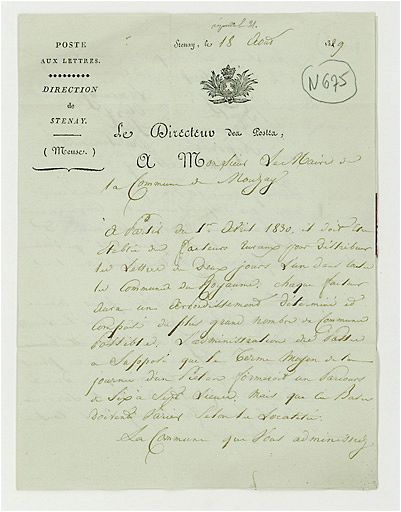 répondu le 31.
Stenay, le 18 Août 1829
N 675
POSTE
AUX LETTRES.
DIRECTION
de
STENAY.
(Meuse.)
Le Directeur des Postes,
A Monsieur Le Maire de
la Commune de Mouzay
A Partir du 1er Avril 1830, il doit être
établie des facteurs ruraux pour distribuer
les Lettres de deux jours l'un dans toutes
les Communes du Royaume, chaque facteur
aura un arrondissement déterminé et
composé du plus grand nombre de Communes
Possible, L'administration des Postes
a Supposé que le terme Moyen de la
journée d'un Piéton formerait un Parcours
de Six à Sept Lieues, mais que ces Bases
doivent Varier Selon les Localités.
La Commune que Vous administrez